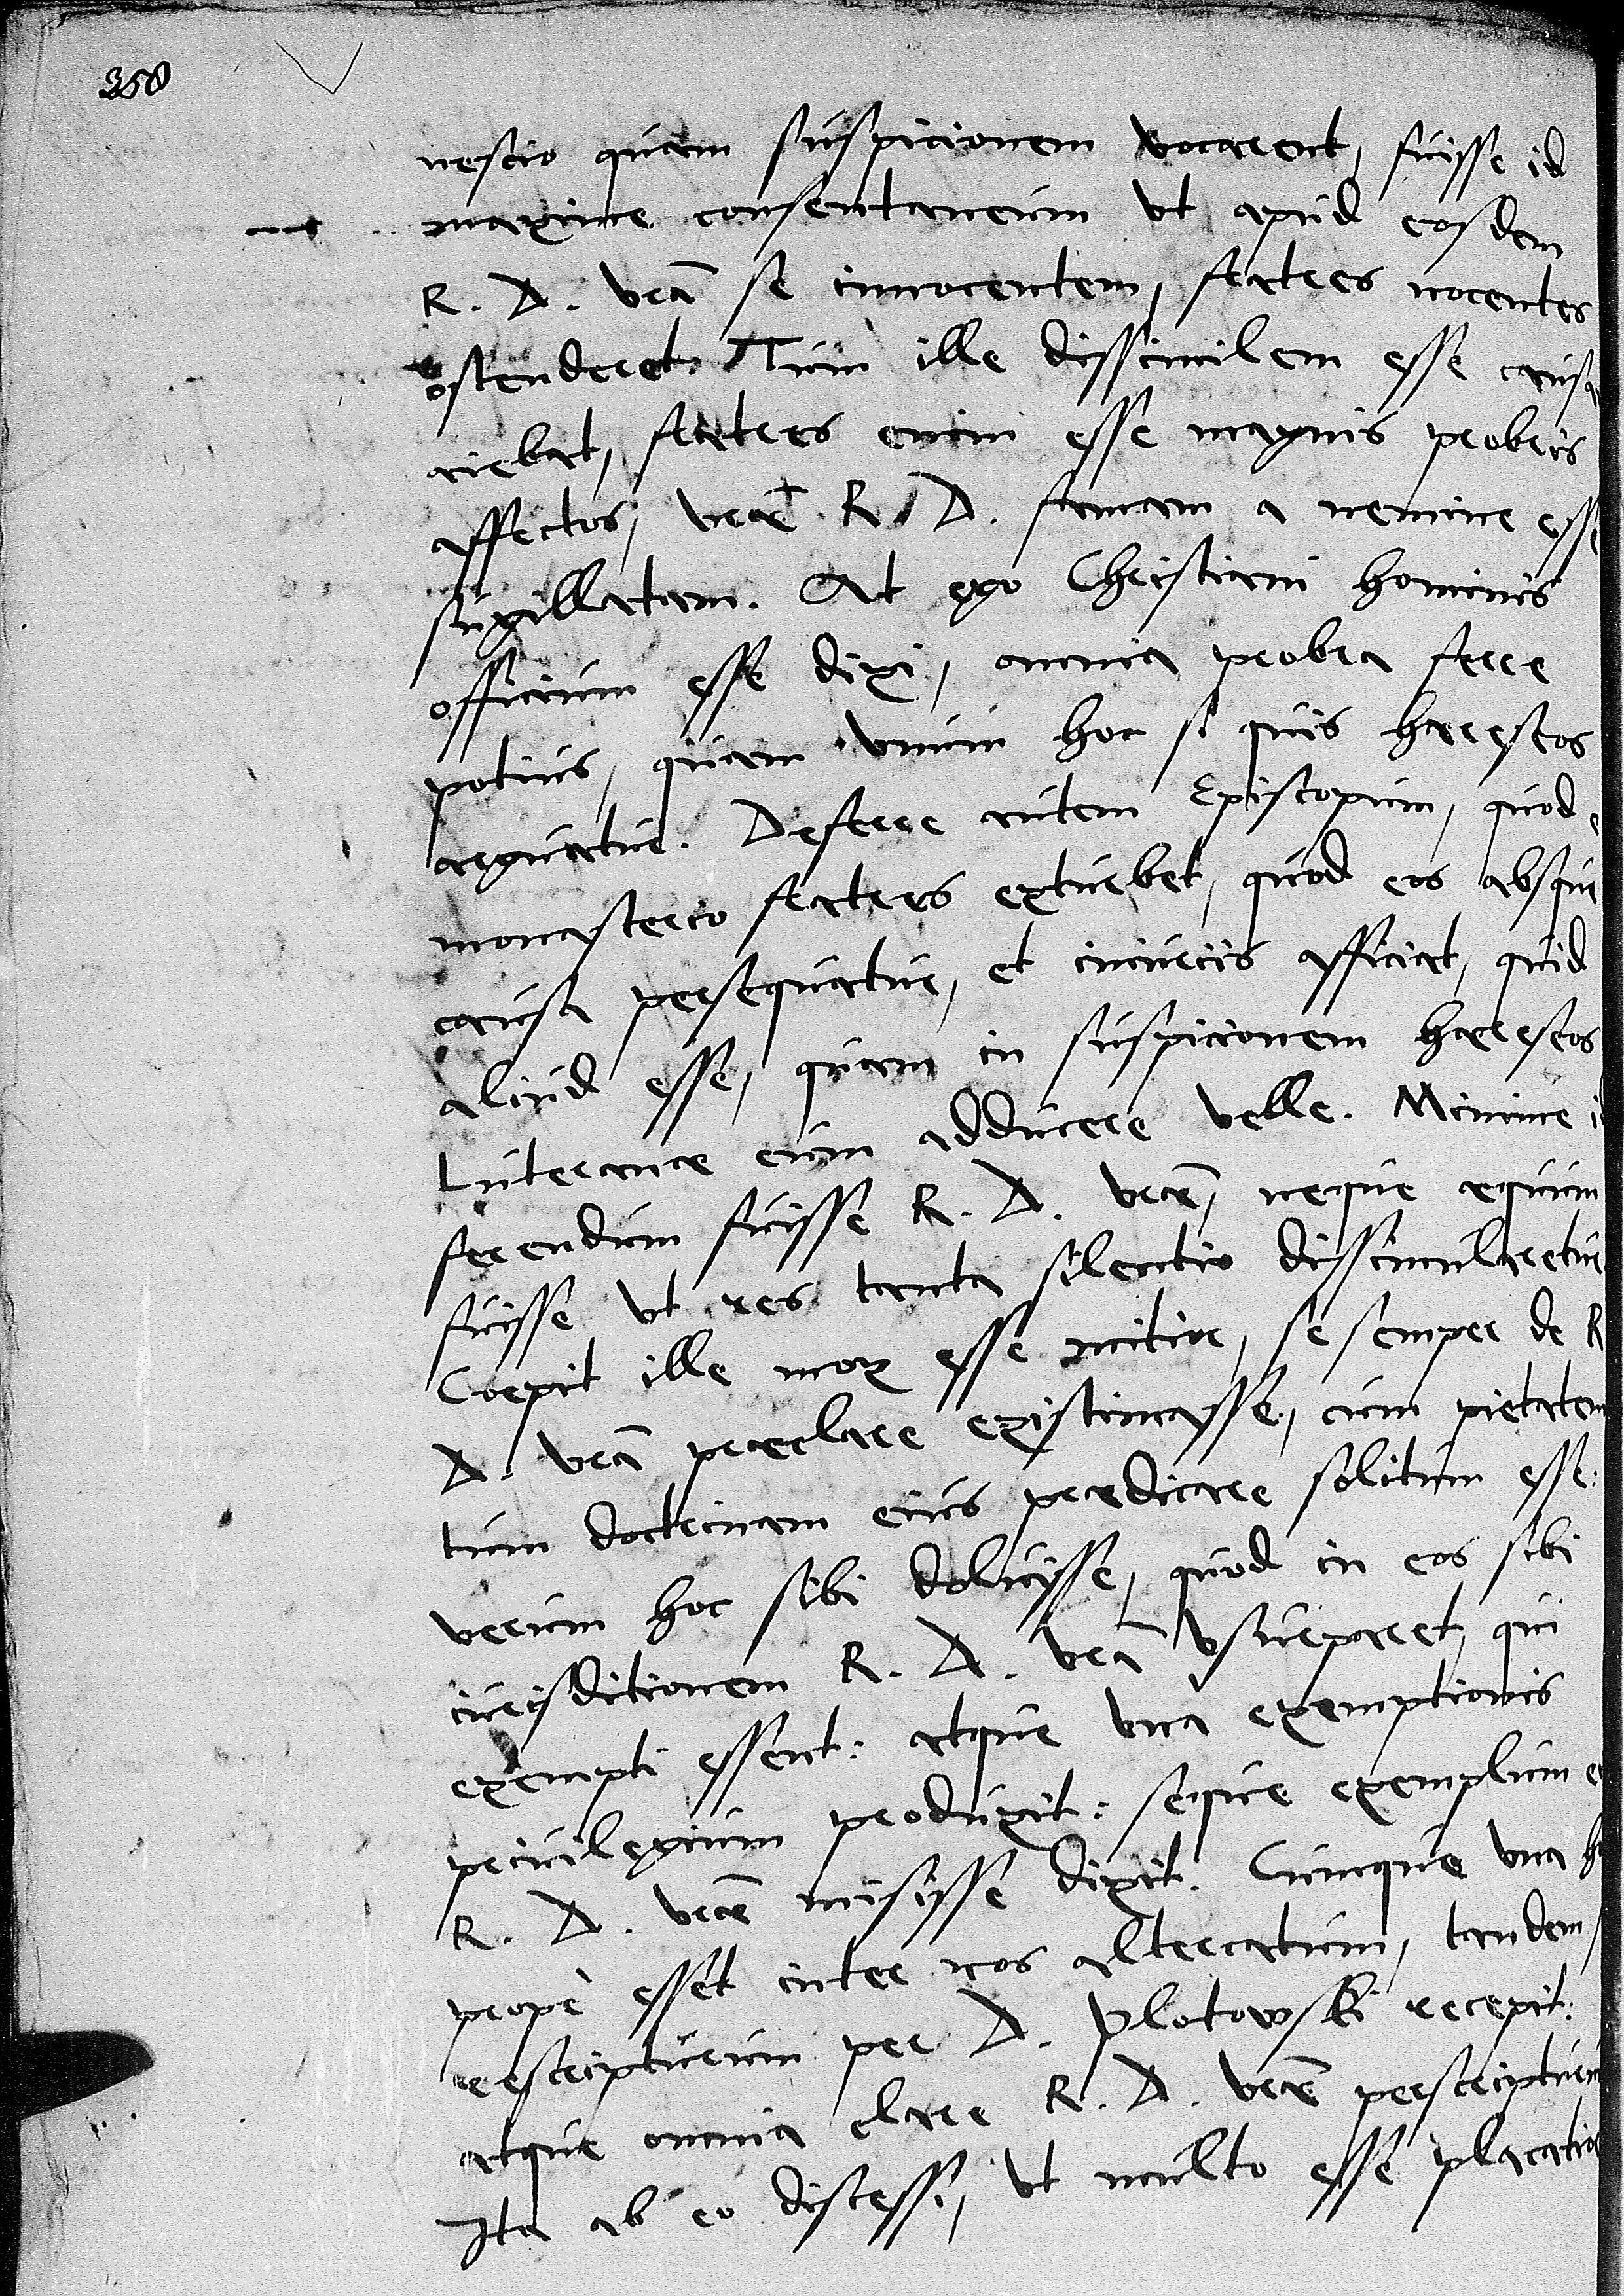 358
nescio quam suspicionem vocarent, fuisse id
maxime consentaneum ut apud eosdem
R. D. vra se innocentem, fratres nocentes
ostenderet. Tum ille dissimilem esse causa
aiebat, fratres enim esse magnis probris
affectos, vrae R. D. famam a nemine esse
sugillatam. At ego Christiani hominis
officium esse dixi, omnia probra ferre
potius, quam unum hoc si quis haereseos
arguatur. Deferre autem Episcopum, quod e
monasterio fratres exturbet, quod eos absque
causa persequatur, et iniuriis afficiat, quid
aliud esse, quam in suspicionem haereseos
Luteranae eum adducere velle. Minime i
ferendum fuisse R. D. vrae, neque aequum
fuisse ut res tanta silentio dissimularetur
Coepit ille mox esse mitior, se semper de R
D. vra praeclare existimasse, cum pietatem
tum doctrinam eius praedicare solitum esse:
verum hoc sibi doluisse, quod in eos sibi
iurisditionem R. D. vra usurparet, qui
exempti essent: atque una exemptionis
privilegium produxit: seque exemplum e
R. D. vrae misisse dixit. Cumque una h
prope esset inter nos altercatum, tandem,
rescripturum per D. Plotowski recepit:
atque omnia clare R. D. vrae perscriptur
Ita ab eo discessi, ut multo esse placatio